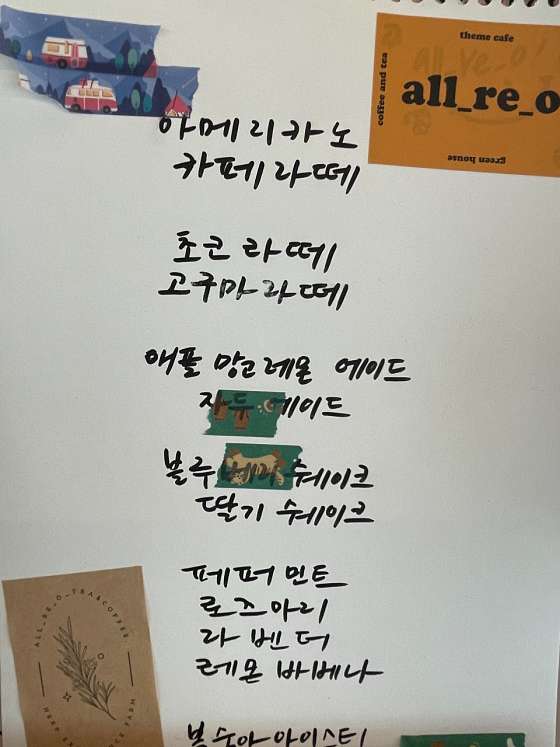 theme cafe
coffee and tea
all_re_o
green house
아메리카노
카페라떼
초코라떼
고구마라떼
애플망고레몬 에이드
자두 에이드
블루베리 쉐이크
딸기 쉐이크
페퍼민트
로즈마리
라벤더
레몬 바베나
복숭아아이스티
ALL_RE_O_TEA&COFFEE